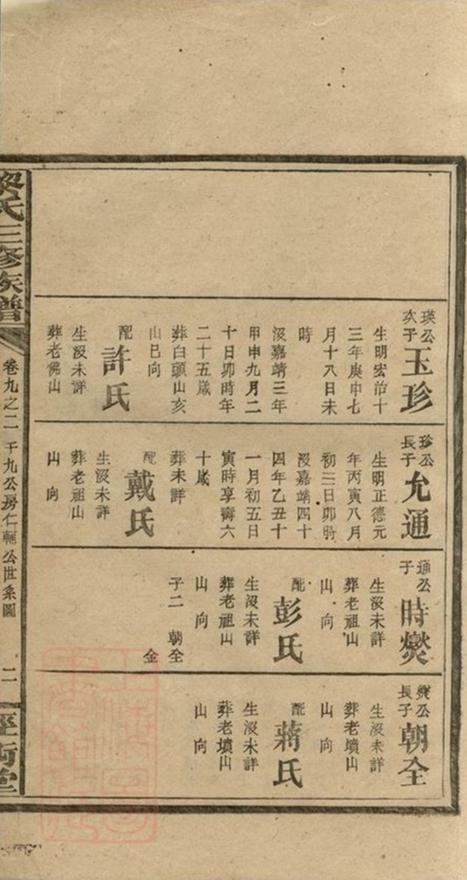 瑛公
次子
玉珍
生明宏治十
三年庚申七
月十八日未
時
沒嘉靖三年
甲申九月二
十日卯時年
二十五歲
葬白頭山亥
山巳向
配許氏
生沒未詳
葬老佛山
珍公
長子
允通
生明正德元
年丙寅八月
初三日卯時
沒嘉靖四十
四年乙丑十
一月初五日
寅時享壽六
十歲
葬未詳
配戴氏
生沒未詳
葬老祖山
山向
通公
子
時爕
生沒未詳
葬老祖山
山向
配彭氏
生沒未詳
葬老祖山
山向
子二 朝全
金
爕公
長子
朝全
生沒未詳
葬老墳山
山向
配蔣氏
生沒未詳
葬老墳山
山向
氏三修族譜
卷九之二 千九公房仁輔公世系圖
二